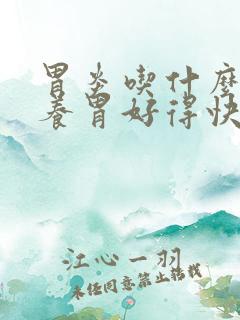 胃炎喫什麼
養胃好得快
江心一羽
未经同意禁止转载